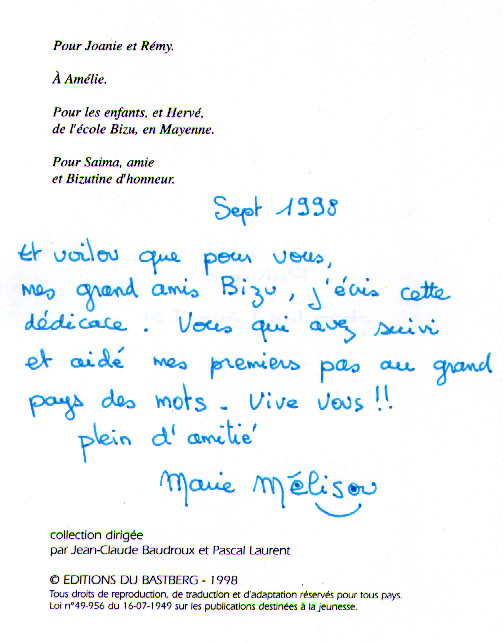 Pour Joanie et Rémy.
À Amélie.
Pour les enfants, et Hervé,
de l'école Bizu, en Mayenne.
Pour Saima, amie
et Bizutine d'honneur.
Sept 1998
Et voilou que pour vous,
mes grand amis Bizu, j'écris cette
dédicace. Vous qui avez suivi
et aidé mes premiers pas au grand
pays des mots. Vive vous !!
plein d'amitié
Marie Mélisou
collection dirigée
par Jean-Claude Baudroux et Pascal Laurent
© EDITIONS DU BASTBERG - 1998
Tous droits de reproduction, de traduction et d'adaptation réservés pour tous pays.
Loi n°49-956 du 16-07-1949 sur les publications destinées à la jeunesse.